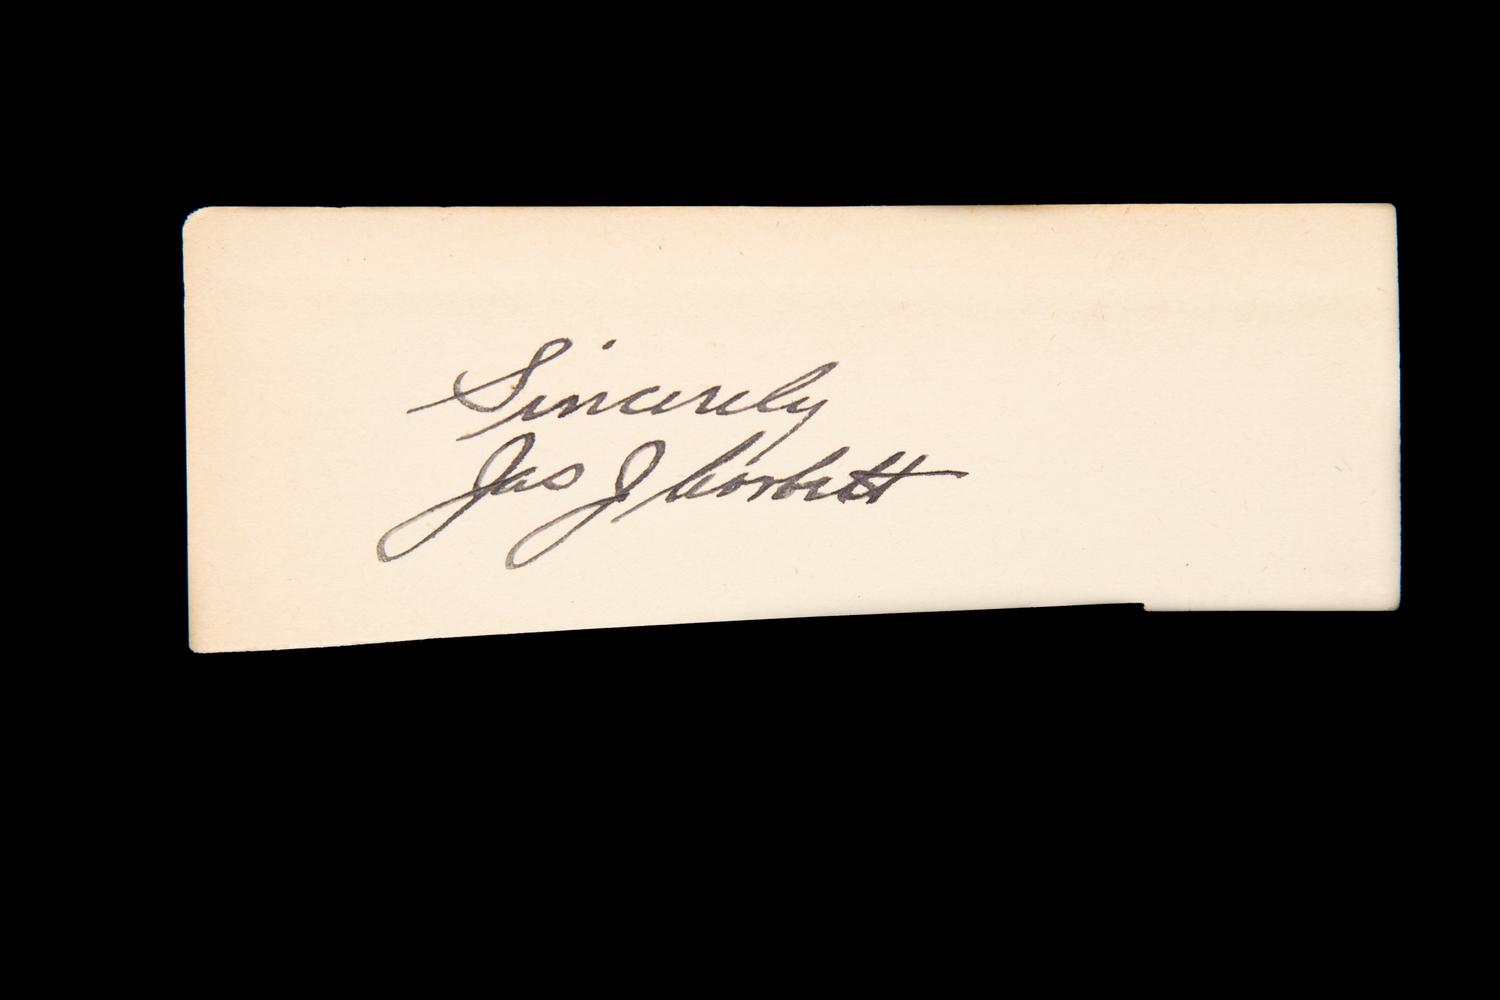 Sincerely
Jas J Corbett